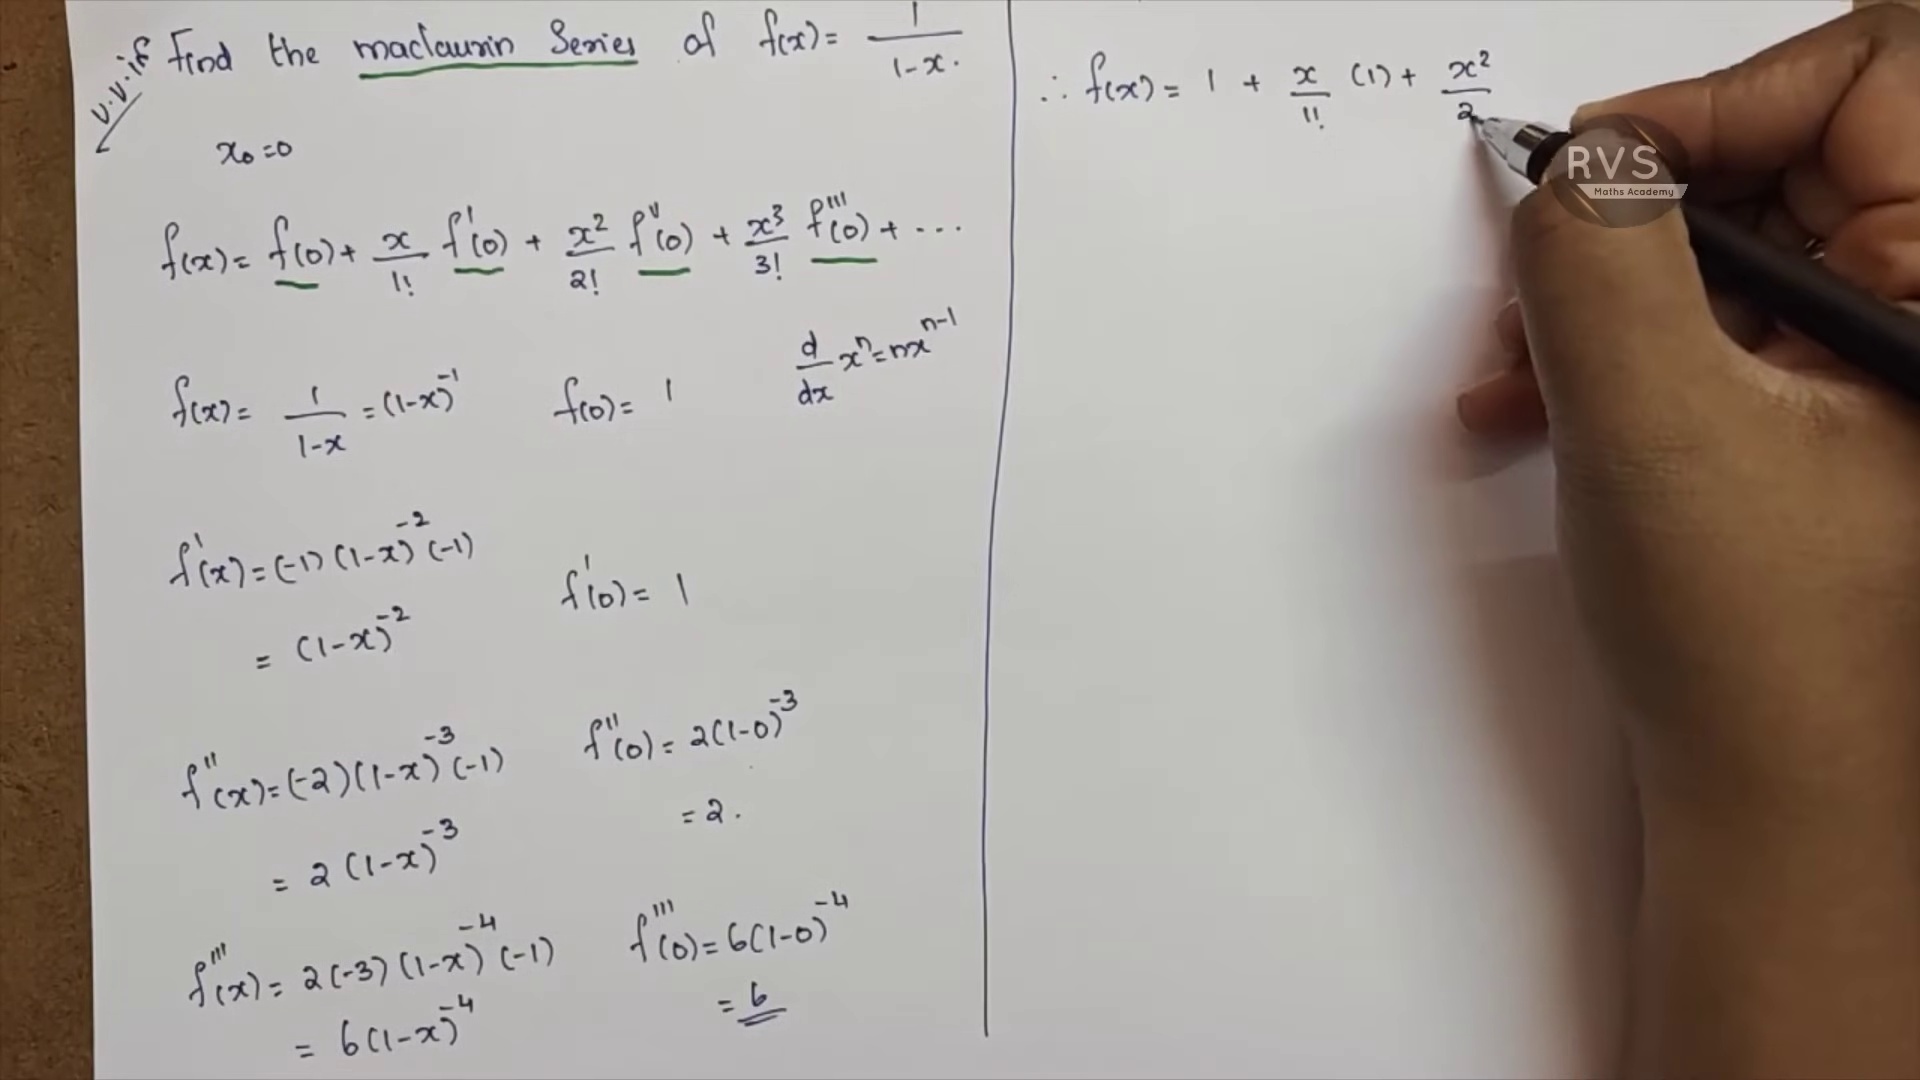 V.V.if Find the maclaurin Series of f(x) = 1/(1-x).
x₀=0
f(x) = f(0) + x/1! f'(0) + x²/2! f''(0) + x³/3! f'''(0) + ...
d/dx xⁿ = nxⁿ⁻¹
f(x) = 1/(1-x) = (1-x)⁻¹ f(0) = 1
f'(x) = (-1)(1-x)⁻²(-1)
= (1-x)⁻² f'(0) = 1
f''(x) = (-2)(1-x)⁻³(-1) f''(0) = 2(1-0)⁻³
= 2(1-x)⁻³ = 2.
f'''(x) = 2(-3)(1-x)⁻⁴(-1) f'''(0) = 6(1-0)⁻⁴
= 6(1-x)⁻⁴ = 6
∴ f(x) = 1 + x/1! (1) + x²/2
RVS
Maths Academy